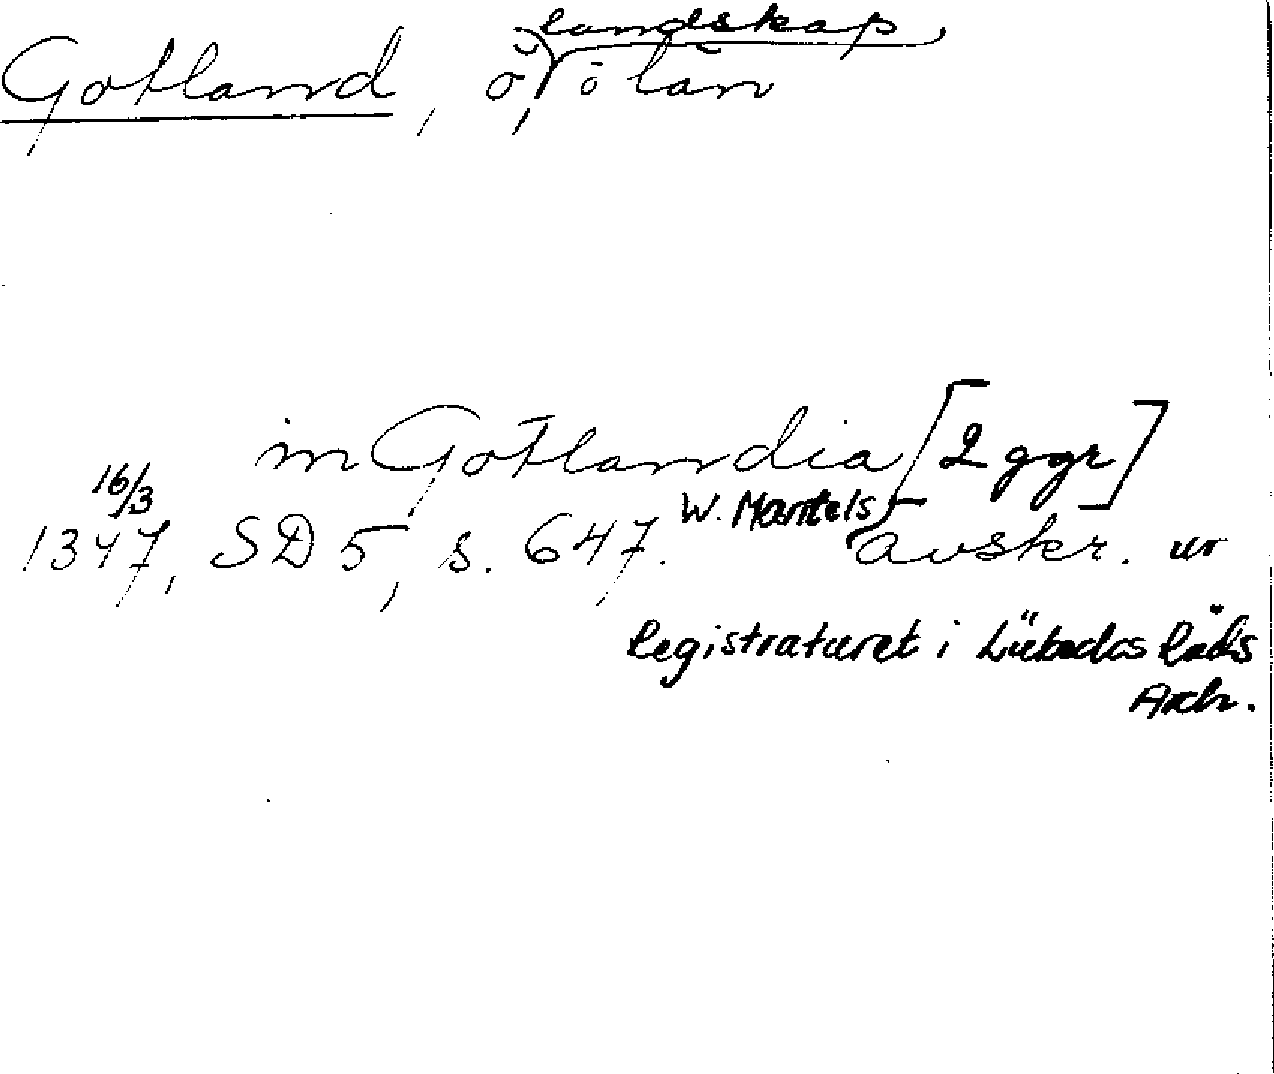 landskap,
Gotland, ö, o län
in Gotlandia [2 ggr]
16/3
1347, SD 5, s. 647. W. Mantels avskr. ur
Registraturet i Lübecks Råds
Arch.